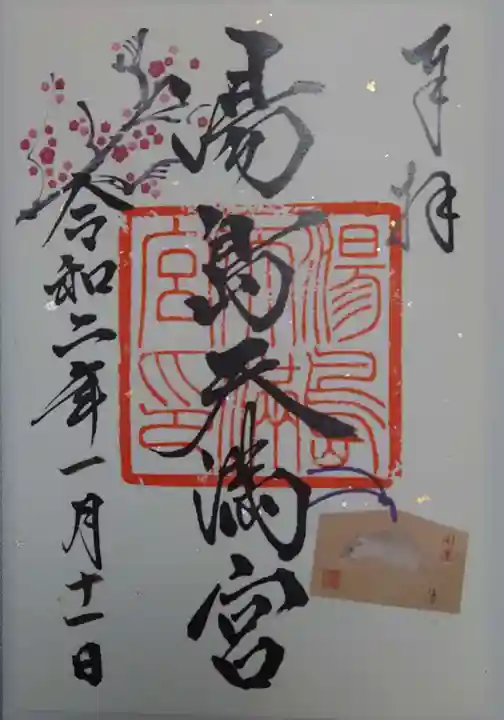 奉拝
湯島天満宮
令和二年一月十一日
湯島
天満
宮印